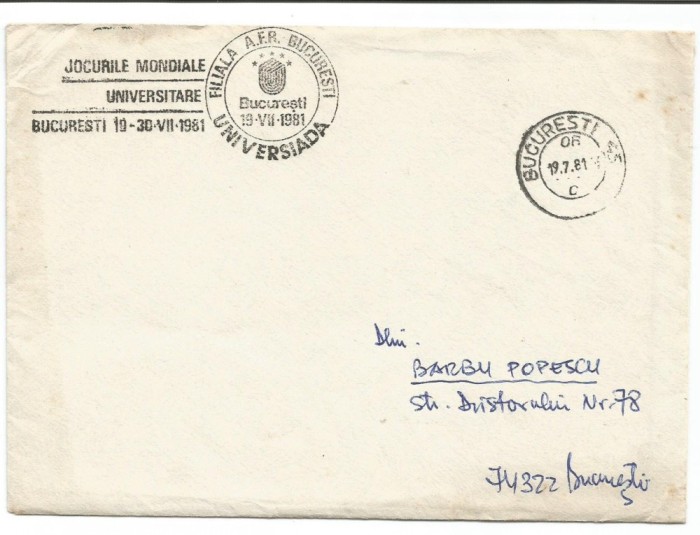 JOCURILE MONDIALE
UNIVERSITARE
BUCUREȘTI 19-30-VII-1981
FILIALA A.F.R. BUCUREȘTI
București
19-VII-1981
UNIVERSIADA
BUCUREȘTI
06
19.7.81
C
Dlui.
BARBU POPESCU
str. Dristorului Nr. 78
74322 București